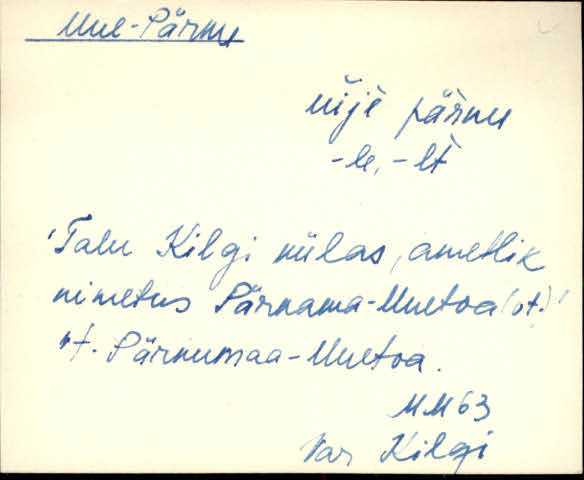 Uue-Pärnu
üije pärnu
-le, -lt
'Talu Kilgi külas, ametlik
nimetus Pärnama-Uuetoa
Pärnumaa-Uuetoa.
MM 63
Var Kilgi